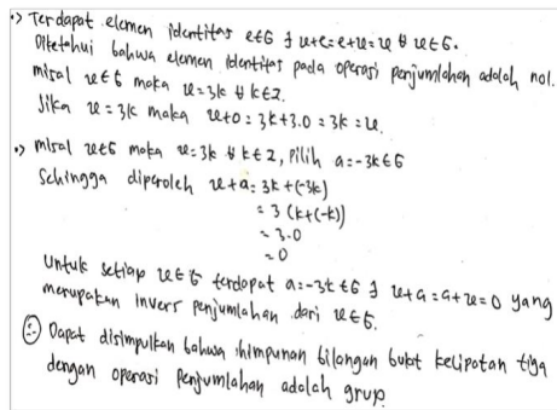 •> Terdapat elemen identitas e∈G ∋ u+e=e+u=u ∀ u∈G.
Diketahui bahwa elemen identitas pada operasi penjumlahan adalah nol.
misal u∈G maka u=3k ∀ k∈Z.
Jika u = 3k maka u+0 = 3k+3.0 = 3k = u.
•> misal u∈G maka u=3k ∀ k∈Z, pilih a=-3k∈G
Sehingga diperoleh u+a = 3k+(-3k)
= 3 (k+(-k))
= 3.0
= 0
Untuk setiap u∈G terdapat a=-3k∈G ∋ u+a=a+u=0 yang
merupakan invers penjumlahan dari u∈G.
∴ Dapat disimpulkan bahwa himpunan bilangan bulat kelipatan tiga
dengan operasi Penjumlahan adalah grup.